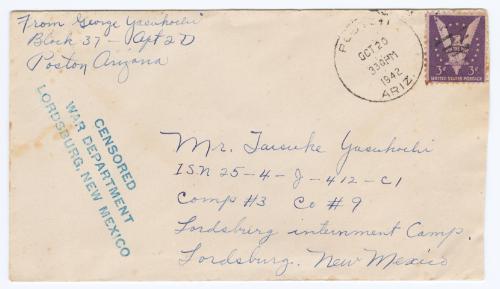 From George Yasukochi
Block 37 - Apt 2D
Poston Arizona
OCT 20
330PM
1942
ARIZ.
WIN THE WAR
3¢ 3¢
UNITED STATES POSTAGE
CENSORED
WAR DEPARTMENT
LORDSBURG, NEW MEXICO
Mr. Taisuke Yasukochi
ISN 25-4-J-412-C1
Comp #3 Co #9
Lordsburg internment Camp.
Lordsburg, New Mexico